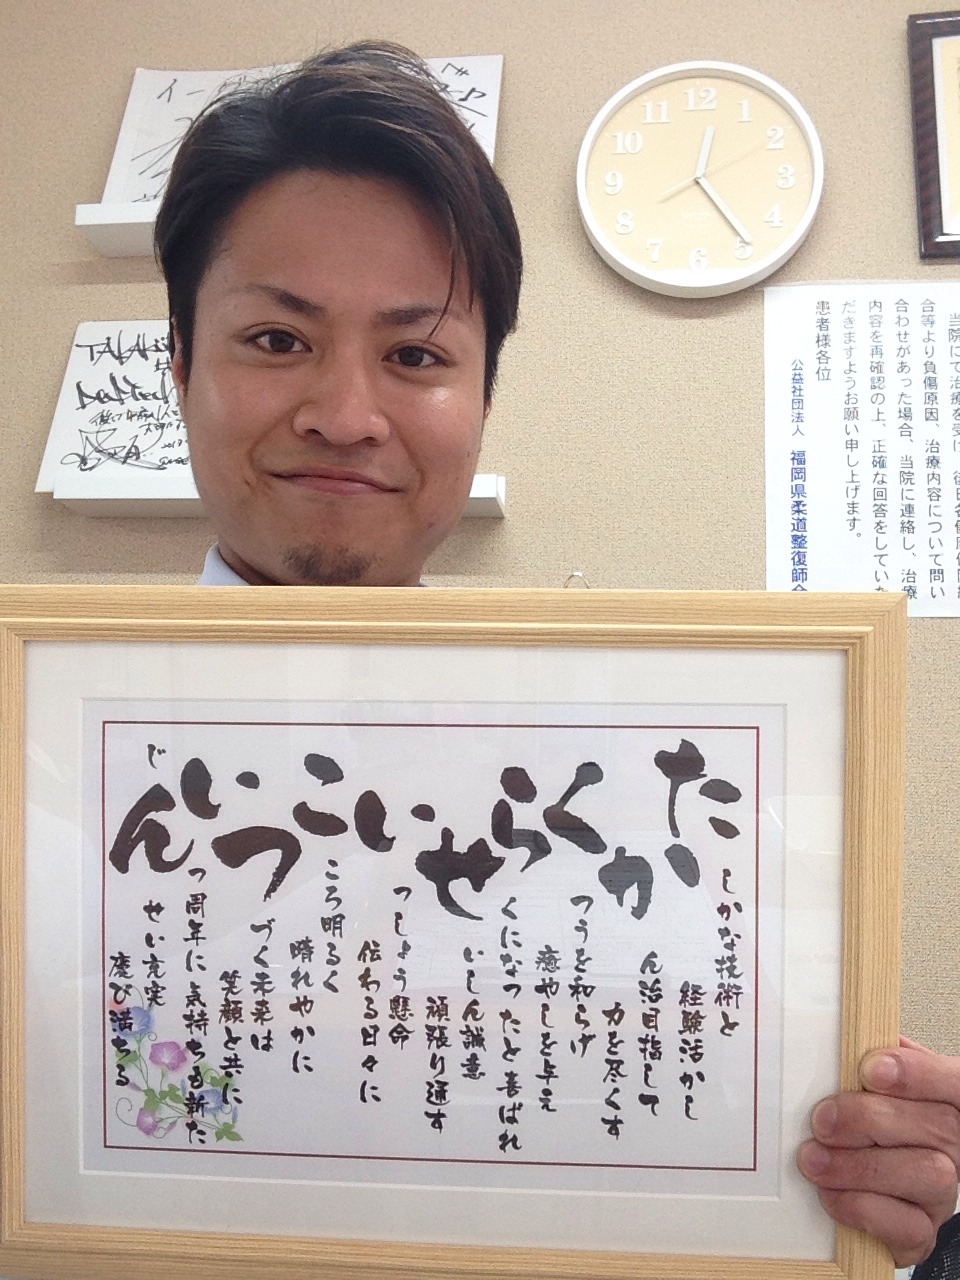 12
1
2
3
4
5
6
7
8
9
10
11
当院にて治療を受け、後日各健康保険組
合等より負傷原因、治療内容について問い
合わせがあった場合、当院に連絡し、治療
内容を再確認の上、正確な回答をしていた
だきますようお願い申し上げます。
患者様各位
公益社団法人 福岡県柔道整復師会
たしかな技術と
経験活かし
かん治目指して
力を尽くす
くつうを和らげ
癒やしを与え
らくになったと喜ばれ
せいしん誠意
頑張り通す
いっしょう懸命
伝わる日々に
こころ明るく
晴れやかに
つづく未来は
笑顔と共に
いっ周年に気持ちも新た
じんせい充実
慶び満ちる